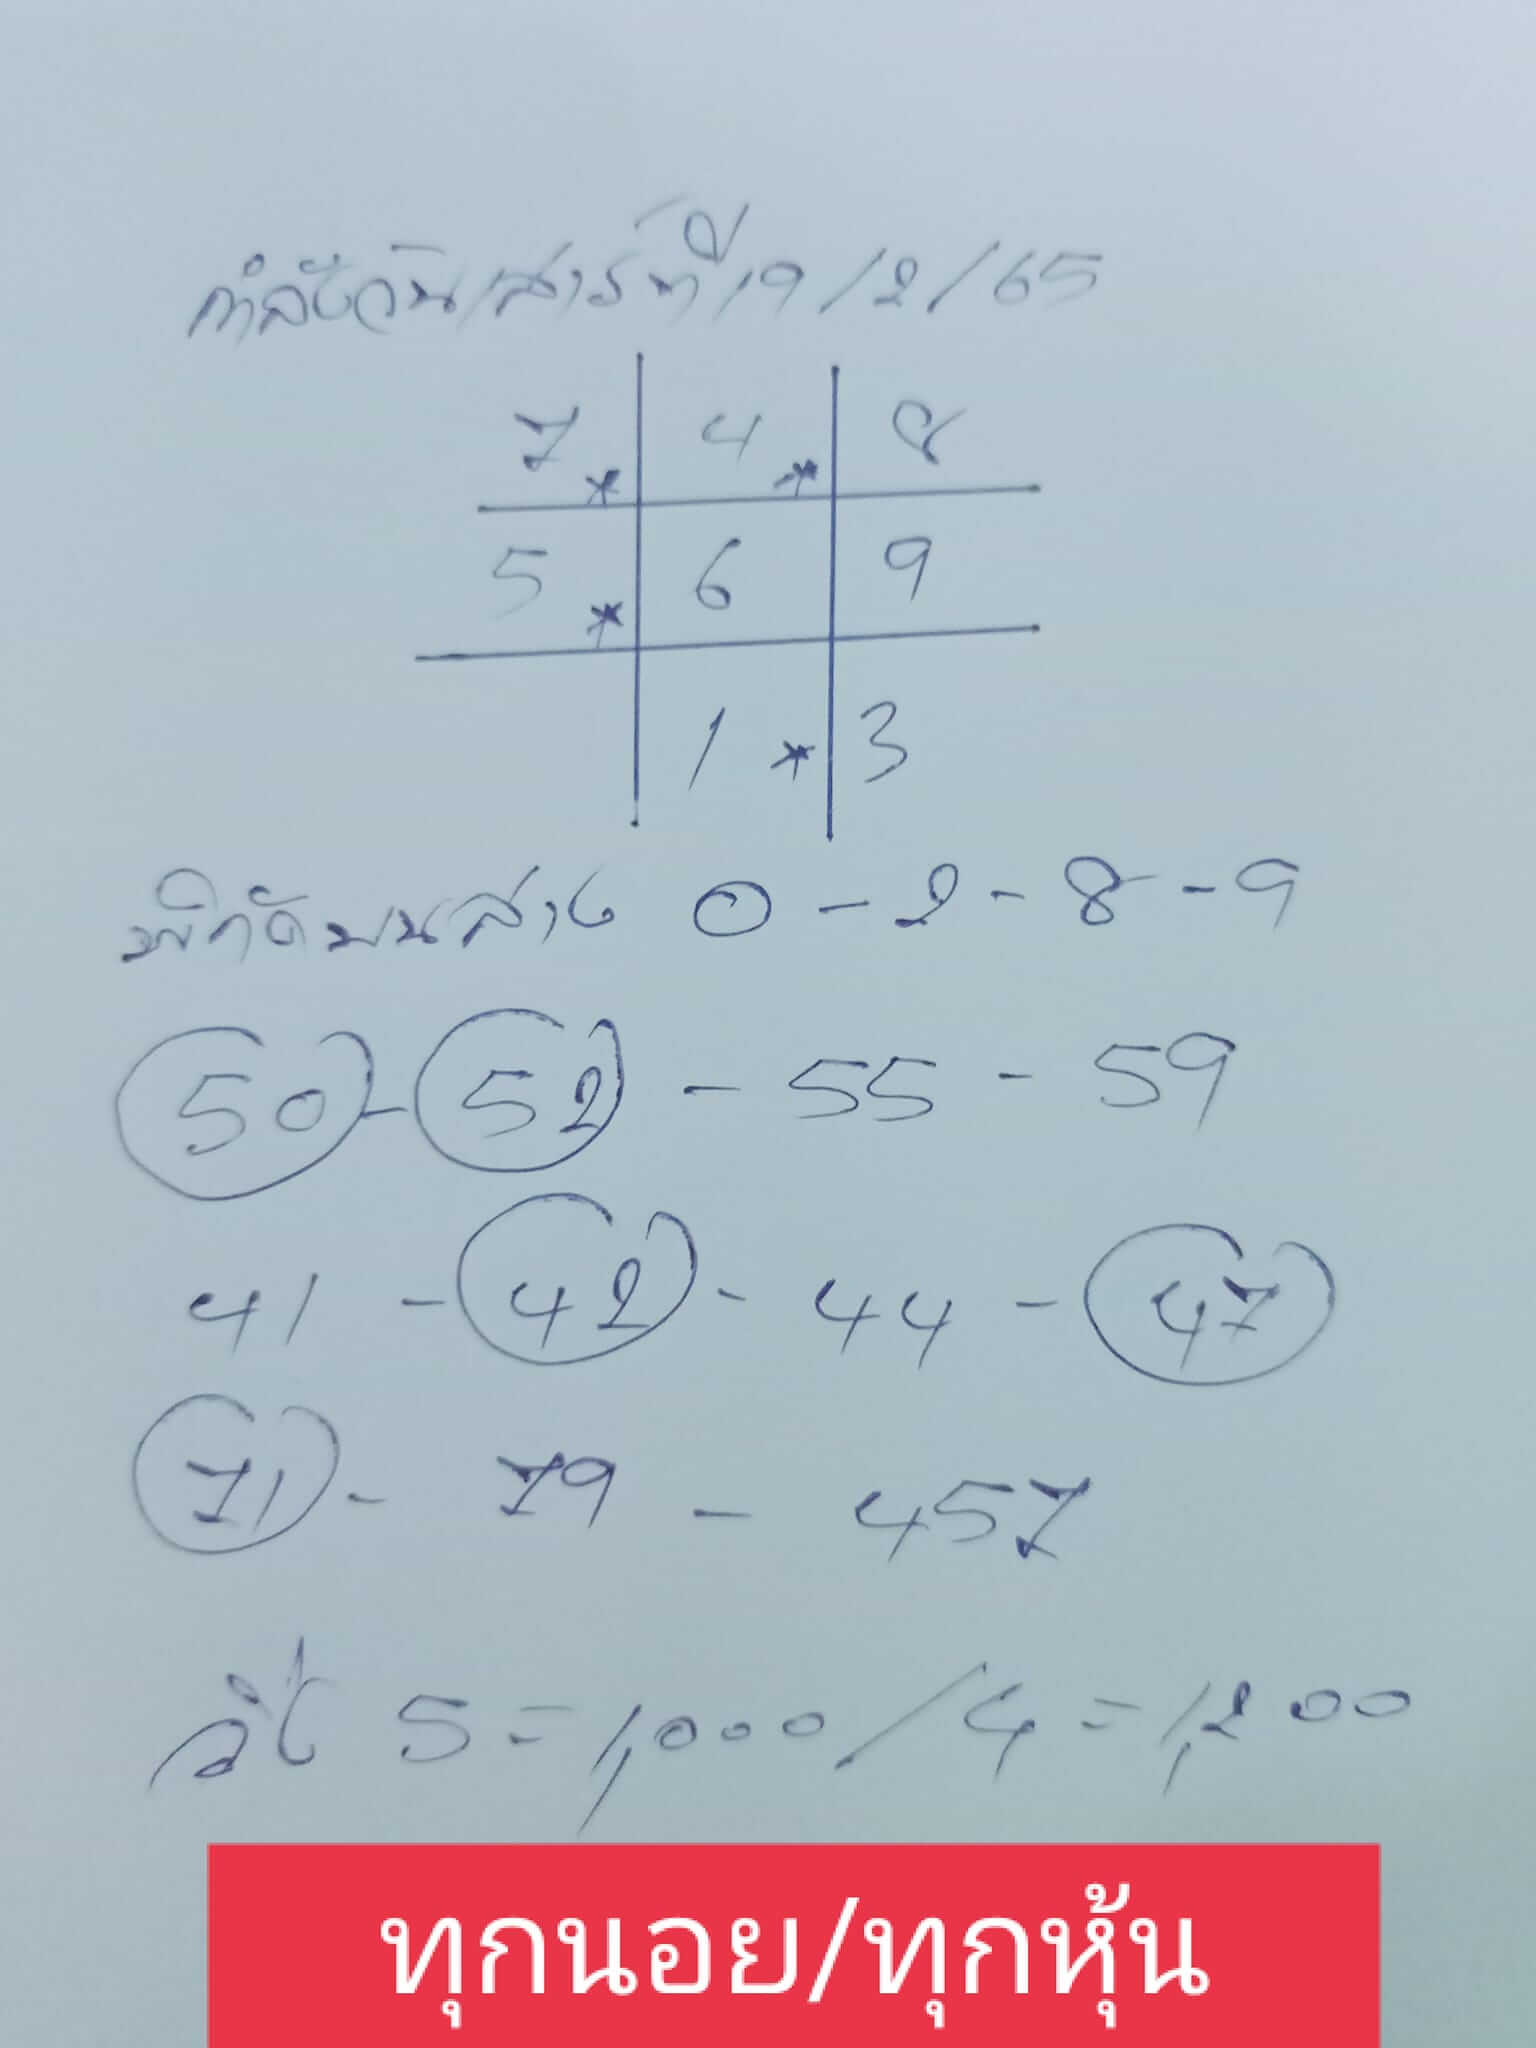 กำลังวันเสาร์ที่ 19/2/65
7* 4* 8
5* 6 9
1* 3
พิกัดบนล่าง 0-2-8-9
50-52-55-59
41-42-44-47
71-79-457
วิ่ง 5=1,000/4=1,200
ทุกนอย/ทุกหุ้น